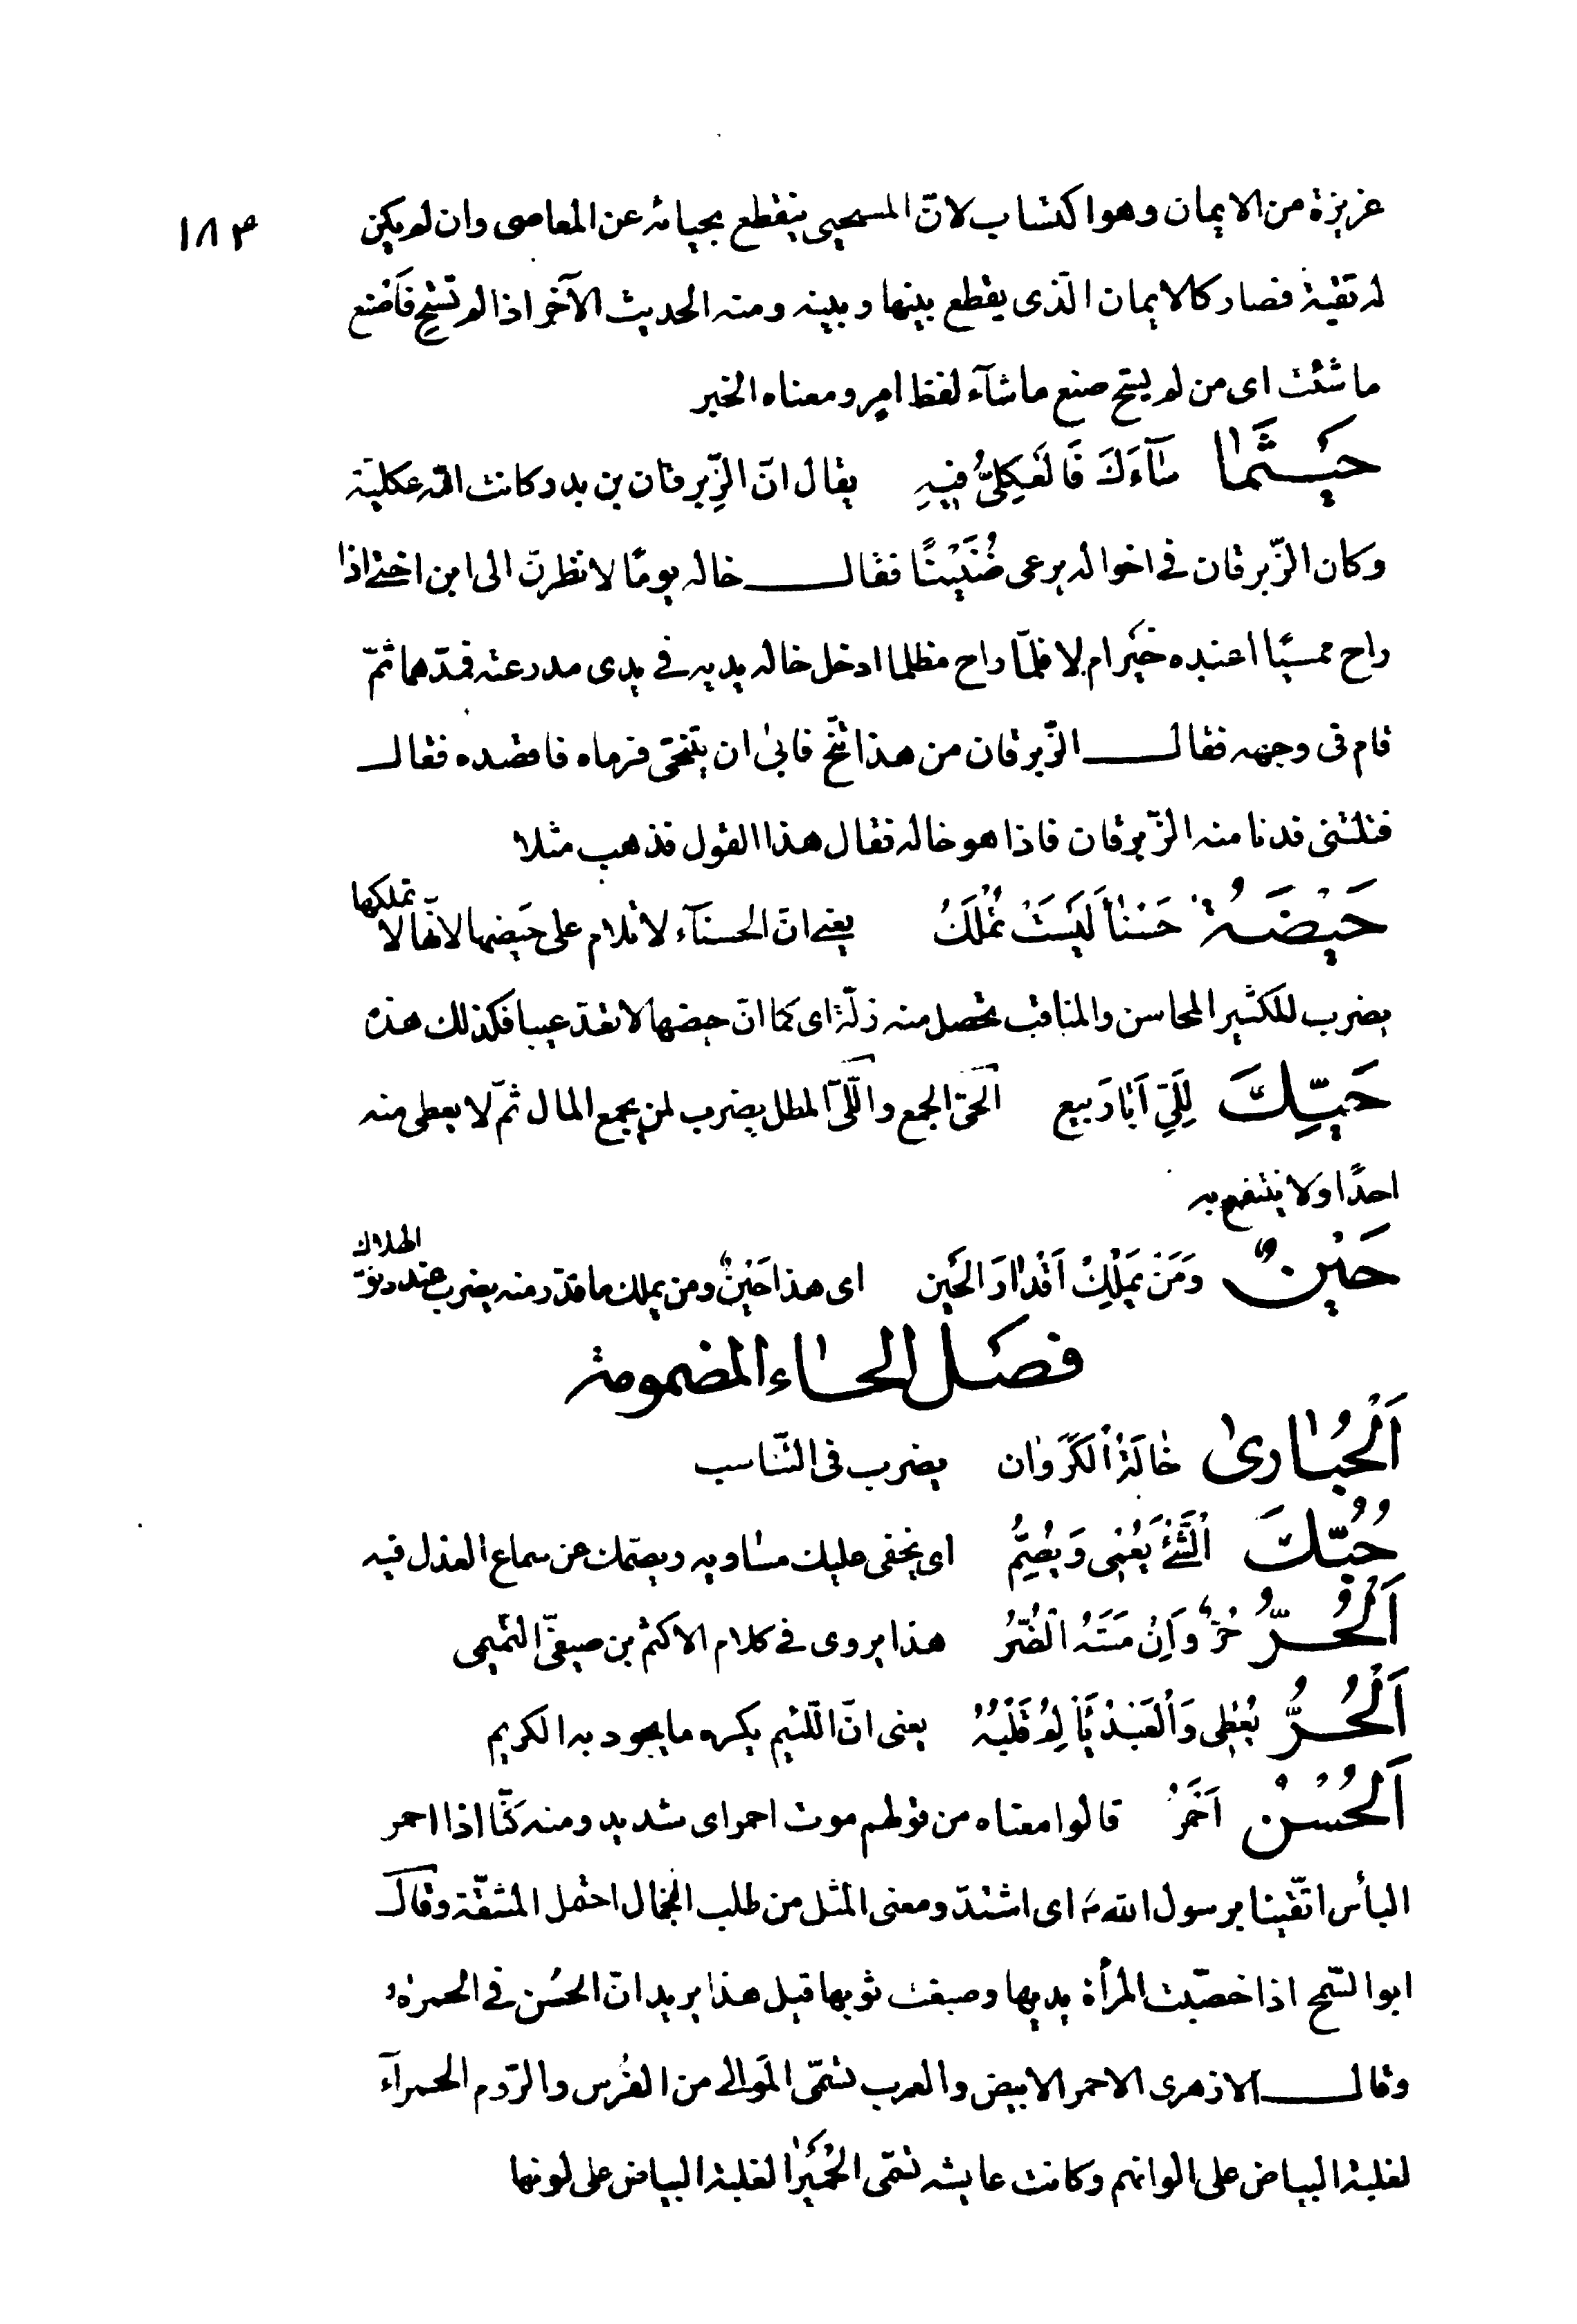 ۱۸۴
غريزة من الايمان وهو اكتساب لانّ المستحيى ينقطع بحيائه عن المعاصى وان لم يكن
له تقية فصار كالايمان الّذى يقطع بينها وبينه ومنه الحديث الآخر اذا لم تستح فاصنع
ما شئت اى من لم يستح صنع ما شآء لفظ امر ومعناه الخبر
حَيْثُمٰا سٰآءَكَ فَالْعُكِلىُّ فيٖهِ يقال انّ الزِّبرقان بن بدر كانت امّه عكليّة
وكان الزّبرقان فى اخواله يرعى ضُئَيْنًا فقال خاله يومًا لانظرنّ الى ابن اختى اذا
راح ممسيًا اعنده خَير ام لا فلمّا راح مظلما ادخل خاله يديه فى يدى مدرعته فمدّهما ثمّ
قام فى وجهه فقال الزّبرقان من هذا تنحّ فابىٰ ان يتنحّى فرماه فاقصده فقال
قتلتنى فدنا منه الزّبرقان فاذا هو خاله فقال هذا القول فذهب مثلا
حَيْضَةُ حَسْنٰاءَ لَيْسَتْ تُمْلَكُ يعنى انّ الحسنآء لا تلام على حَيضها لانّها لا تملكها
يضرب للكثير المحاسن والمناقب تحصل منه زلّة اى كما انّ حيضها لا تعدّ عيبا فكذلك هذه
حَيَّكَ لِلَىِّ اَبٰا رَبيع الحىّ الجمع واللّىّ المطل يضرب لمن يجمع المال ثمّ لا يعطى منه
احدًا ولا ينتفع به
حَيْنٌ وَمَنْ يَمْلِكُ اَقْدٰارَ الحَين اى هذا حَيْنٌ ومن يملك ما قدّر منه يضرب عند دنوّ الهلاك
فصل الحاء المضمومة
اَلْحُبٰارىٰ خٰالَةُ الْكَرَوٰان يضرب فى التّناسب
حُبُّكَ الشَّىْءَ يُعْمى وَيُصِمُّ اى يخفى عليك مساويه ويصمّك عن سماع العذل فيه
اَلْحُرُّ حُرٌّ وَاِنْ مَسَّهُ الضُّرُّ هذا يروى فى كلام الاكثم بن صيفىّ التّميمى
اَلْحُرُّ يُعْطى وَالْعَبْدُ يَأْلَمُ قَلْبُهُ يعنى انّ اللّئيم يكره ما يجود به الكريم
اَلْحُسْنُ اَحْمَرُ قالوا معناه من قولهم موت احمر اى شديد ومنه كنّا اذا احمر
البأس اتّقينا برسول اللّه ص اى اشتدّ ومعنى المثل من طلب الجمال احتمل المشقّة وقال
ابو السّمح اذا خضبت المرأة يديها وصبغت ثوبها قيل هذا يريد انّ الحسُن فى الحمرة
وقال الازهرى الاحمر الابيض والعرب تسمّى المَوالى من الفُرس والرّوم الحمرآء
لغلبة البياض على الوانهم وكانت عايشه تسمّى الحُمَيرٰا لغلبة البياض على لونها